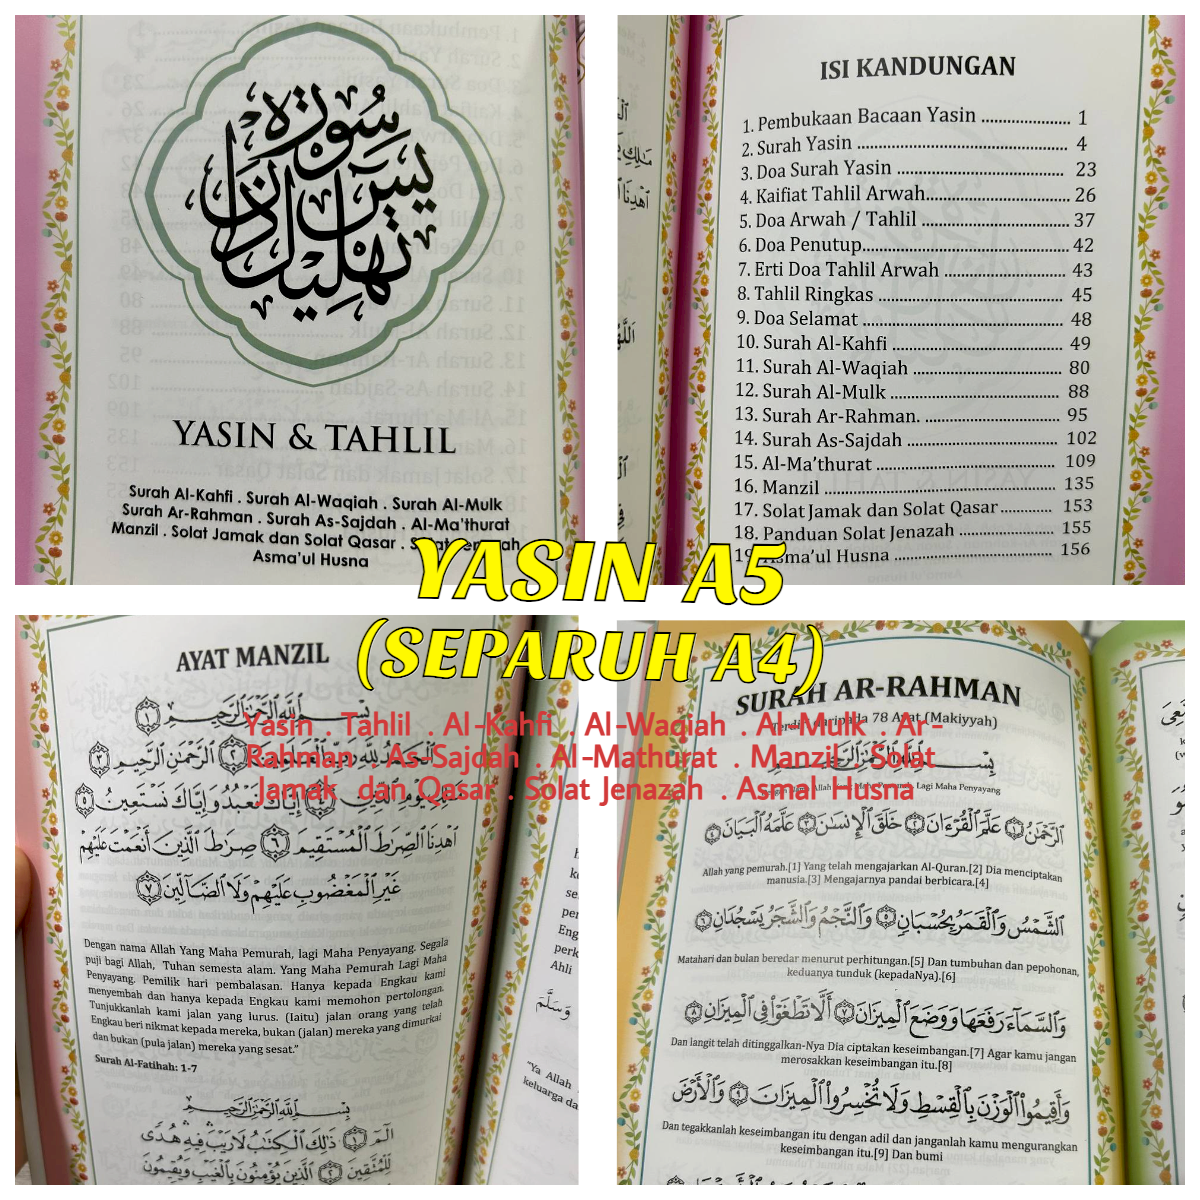 سورة
يس
دان
تهليل
YASIN & TAHLIL
Surah Al-Kahfi . Surah Al-Waqiah . Surah Al-Mulk
Surah Ar-Rahman . Surah As-Sajdah . Al-Ma'thurat
Manzil . Solat Jamak dan Solat Qasar .
Asma'ul Husna
ISI KANDUNGAN
1. Pembukaan Bacaan Yasin .................... 1
2. Surah Yasin .................... 4
3. Doa Surah Yasin .................... 23
4. Kaifiat Tahlil Arwah .................... 26
5. Doa Arwah / Tahlil .................... 37
6. Doa Penutup .................... 42
7. Erti Doa Tahlil Arwah .................... 43
8. Tahlil Ringkas .................... 45
9. Doa Selamat .................... 48
10. Surah Al-Kahfi .................... 49
11. Surah Al-Waqiah .................... 80
12. Surah Al-Mulk .................... 88
13. Surah Ar-Rahman. .................... 95
14. Surah As-Sajdah .................... 102
15. Al-Ma'thurat .................... 109
16. Manzil .................... 135
17. Solat Jamak dan Solat Qasar ............ 153
18. Panduan Solat Jenazah .................... 155
19. Asma'ul Husna .................... 156
YASIN A5
(SEPARUH A4)
Yasin . Tahlil . Al-Kahfi . Al-Waqiah . Al-Mulk . Ar-
Rahman . As-Sajdah . Al-Mathurat . Manzil . Solat
Jamak dan Qasar . Solat Jenazah . Asmal Husna
AYAT MANZIL
بِسْمِ ٱللَّهِ ٱلرَّحْمَٰنِ ٱلرَّحِيمِ ١
ٱلْحَمْدُ لِلَّهِ رَبِّ ٱلْعَٰلَمِينَ ٢ ٱلرَّحْمَٰنِ ٱلرَّحِيمِ ٣
مَٰلِكِ يَوْمِ ٱلدِّينِ ٤ إِيَّاكَ نَعْبُدُ وَإِيَّاكَ نَسْتَعِينُ ٥
ٱهْدِنَا ٱلصِّرَٰطَ ٱلْمُسْتَقِيمَ ٦ صِرَٰطَ ٱلَّذِينَ أَنْعَمْتَ عَلَيْهِمْ
غَيْرِ ٱلْمَغْضُوبِ عَلَيْهِمْ وَلَا ٱلضَّآلِّينَ ٧
Dengan nama Allah Yang Maha Pemurah, lagi Maha Penyayang. Segala
puji bagi Allah, Tuhan semesta alam. Yang Maha Pemurah Lagi Maha
Penyayang. Pemilik hari pembalasan. Hanya kepada Engkau kami
menyembah dan hanya kepada Engkau kami memohon pertolongan.
Tunjukkanlah kami jalan yang lurus. (Iaitu) jalan orang yang telah
Engkau beri nikmat kepada mereka, bukan (jalan) mereka yang dimurkai
dan bukan (pula jalan) mereka yang sesat."
Surah Al-Fatihah: 1-7
بِسْمِ ٱللَّهِ ٱلرَّحْمَٰنِ ٱلرَّحِيمِ
الٓمٓ ١ ذَٰلِكَ ٱلْكِتَٰبُ لَا رَيْبَ فِيهِ هُدًى
لِّلْمُتَّقِينَ ٢ ٱلَّذِينَ يُؤْمِنُونَ بِٱلْغَيْبِ وَيُقِيمُونَ
وَسَلَّمَ
"Ya Allah
keluarga da
SURAH AR-RAHMAN
Terdiri daripada 78 Ayat (Makiyyah)
بِسْمِ ٱللَّهِ ٱلرَّحْمَٰنِ ٱلرَّحِيمِ
Lagi Maha Penyayang
ٱلرَّحْمَٰنُ ١ عَلَّمَ ٱلْقُرْءَانَ ٢ خَلَقَ ٱلْإِنسَٰنَ ٣ عَلَّمَهُ ٱلْبَيَانَ ٤
Allah yang pemurah.[1] Yang telah mengajarkan Al-Quran.[2] Dia menciptakan
manusia.[3] Mengajarnya pandai berbicara.[4]
ٱلشَّمْسُ وَٱلْقَمَرُ بِحُسْبَانٍ ٥ وَٱلنَّجْمُ وَٱلشَّجَرُ يَسْجُدَانِ ٦
Matahari dan bulan beredar menurut perhitungan.[5] Dan tumbuhan dan pepohonan,
keduanya tunduk (kepadaNya).[6]
وَٱلسَّمَآءَ رَفَعَهَا وَوَضَعَ ٱلْمِيزَانَ ٧ أَلَّا تَطْغَوْا۟ فِى ٱلْمِيزَانِ ٨
Dan langit telah ditinggalkan-Nya Dia ciptakan keseimbangan.[7] Agar kamu jangan
merosakkan keseimbangan itu.[8]
وَأَقِيمُوا۟ ٱلْوَزْنَ بِٱلْقِسْطِ وَلَا تُخْسِرُوا۟ ٱلْمِيزَانَ ٩ وَٱلْأَرْضَ
Dan tegakkanlah keseimbangan itu dengan adil dan janganlah kamu mengurangkan
keseimbangan itu.[9] Dan bumi